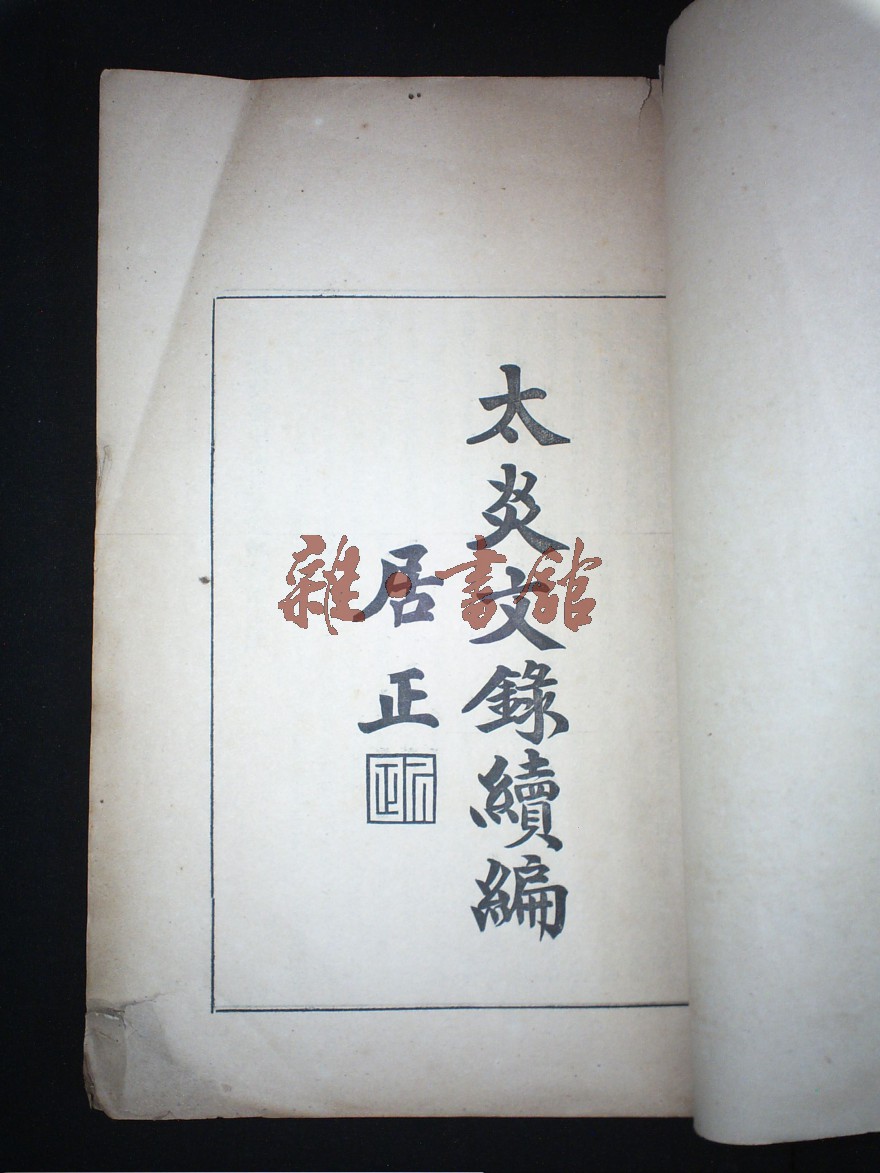 太炎文錄續編
居正
雜·書舘